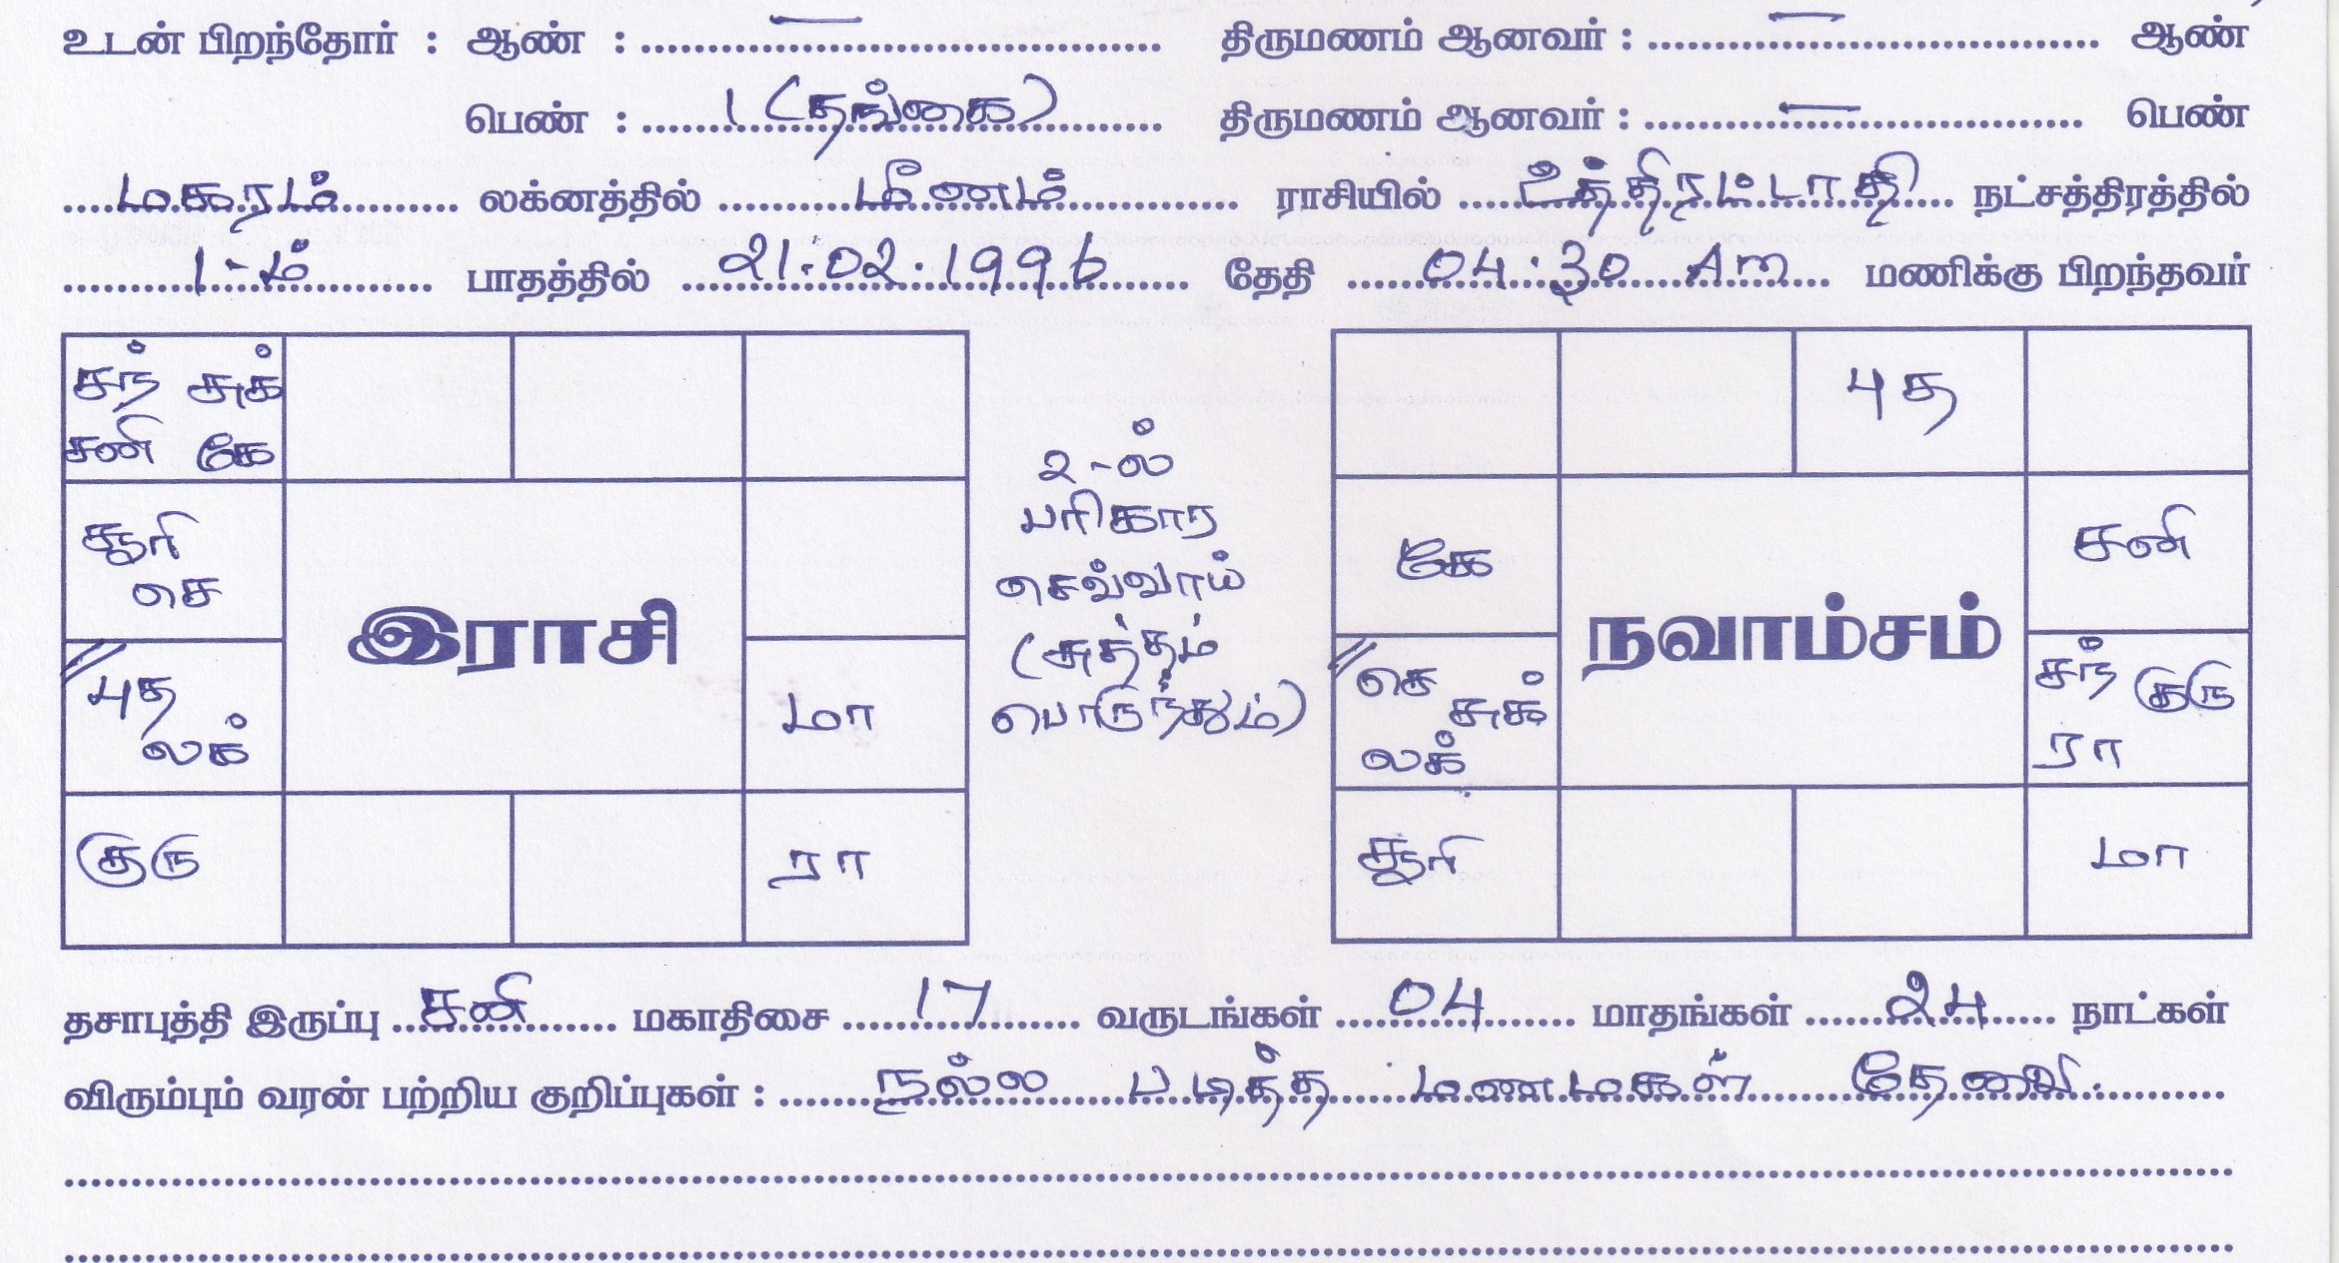 உடன் பிறந்தோர் : ஆண் : .......... — .......... திருமணம் ஆனவர் : .......... — .......... ஆண்
பெண் : .......... 1 (தங்கை) .......... திருமணம் ஆனவர் : .......... — .......... பெண்
.....மகரம்..... லக்னத்தில் .....மீனம்..... ராசியில் .....உத்திரட்டாதி..... நட்சத்திரத்தில்
.....1-ம்..... பாதத்தில் .....21.02.1996..... தேதி .....04:30 Am..... மணிக்கு பிறந்தவர்
சந் சுக்
சனி கே
சூரி
செ
புத
லக்
குரு
இராசி
மா
ரா
2-ல்
பரிகார
செவ்வாய்
(சுத்தம்
பொருந்தும்)
புத
கே
செ சுக்
லக்
சூரி
நவாம்சம்
சனி
சந் குரு
ரா
மா
தசாபுத்தி இருப்பு .....சனி..... மகாதிசை .....17..... வருடங்கள் .....04..... மாதங்கள் .....24..... நாட்கள்
விரும்பும் வரன் பற்றிய குறிப்புகள் : .....நல்ல படித்த மணமகள் தேவை.....